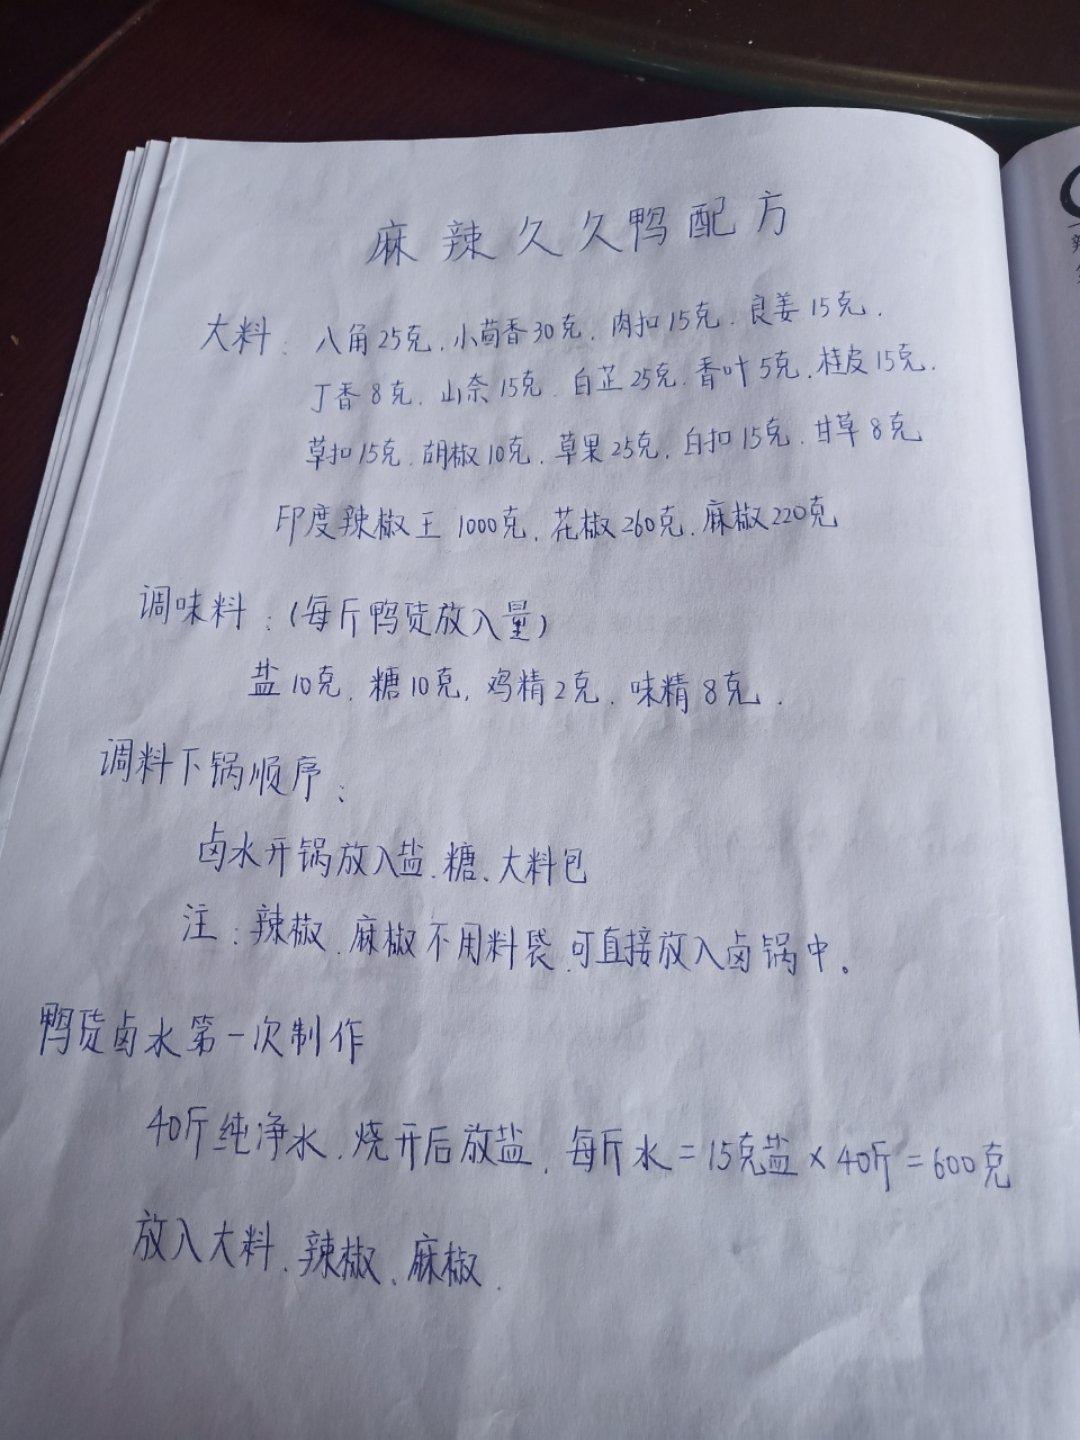 麻辣久久鸭配方
大料：八角25克.小茴香30克.肉扣15克.良姜15克.
丁香8克.山奈15克.白芷25克.香叶5克.桂皮15克.
草扣15克.胡椒10克.草果25克.白扣15克.甘草8克
印度辣椒王1000克.花椒260克.麻椒220克
调味料：(每斤鸭货放入量)
盐10克.糖10克,鸡精2克.味精8克.
调料下锅顺序：
卤水开锅放入盐.糖、大料包
注：辣椒.麻椒不用料袋.可直接放入卤锅中。
鸭货卤水第一次制作
40斤纯净水.烧开后放盐.每斤水=15克盐×40斤=600克
放入大料.辣椒、麻椒.